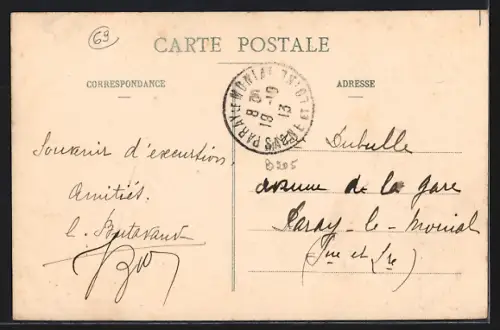 69
CARTE POSTALE
CORRESPONDANCE
ADRESSE
PARAY LE MONIAL SAÔNE ET LOIRE
8
19 - 10
13
Souvenir d'excursion.
Amitiés.
Dubulle
avenue de la gare
Paray-le-Monial
(Sne et Lre)